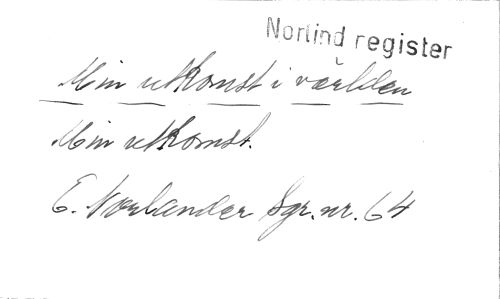 Norlind register
Min utkomst i världen
Min utkomst.
E. Norlander Sgr. nr. 64